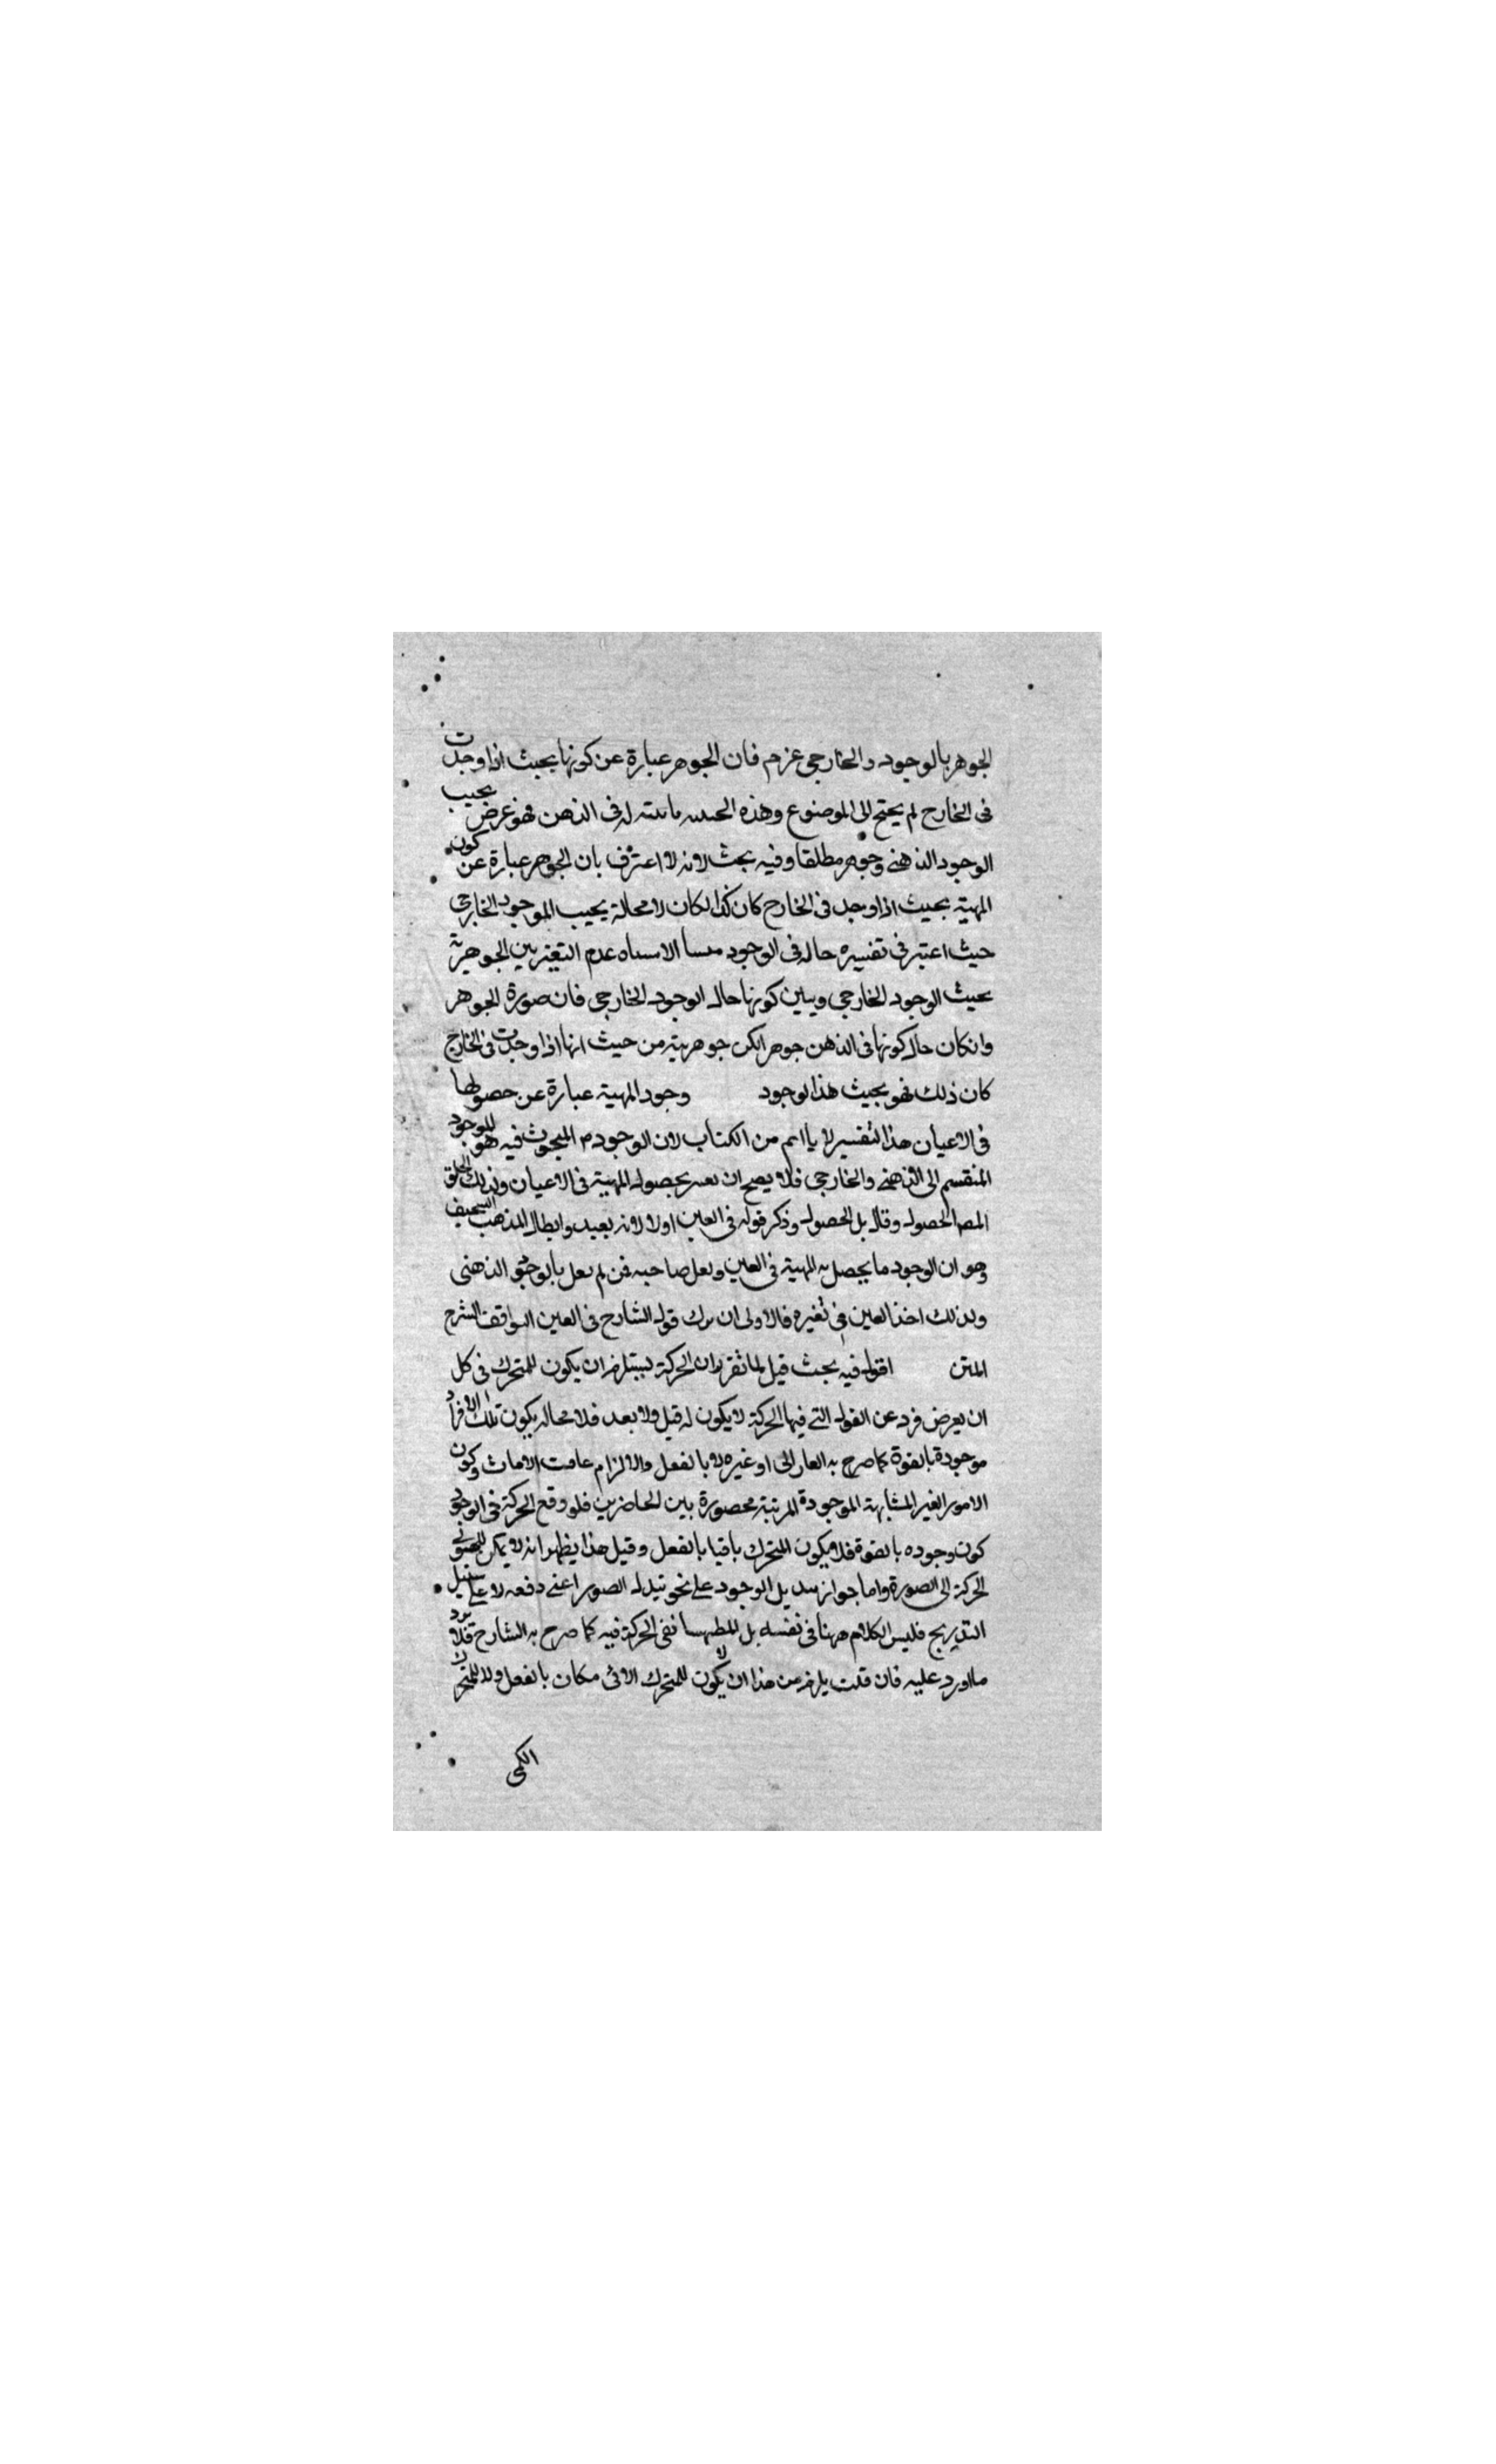 الجوهر بالوجود والخارجي عزم فان الجوهر عبارة عن كونها بحيث اذا وجدت
فى الخارج لم يحتج الى الموضوع وهذه له فى الذهن فهو عرض بحيب
الوجود الذهنى وجوهر مطلقا وفيه بحث لانه لا اعترف بان الجوهر عبارة عن كون
المهية بحيث اذا وجد فى الخارج كان كذا لكان لا محالة بحيب الموجود الخارجى
حيث اعتبر فى تفسيره حاله فى الوجود عدم التغير بين الجوهرية
بحيث الوجود الخارجى وبين كونها حال الوجود الخارجى فان صورة الجوهر
وانكان حال كونها فى الذهن جوهر لكن جوهرية من حيث انها اذا وجدت فى الخارج
كان ذلك فهو بحيث هذا لوجود وجود المهية عبارة عن حصولها
فى الاعيان هذا التفسير لا من الكتاب لان الوجودم المبحوث فيه هو للوجود
المنقسم الى الذهنى والخارجى فلا يصح ان بحصول المهية فى الاعيان ولذلك
المص الحصول وقال بل الحصول وذكر قوله فى العين اولا لانه بعيد وابطال المذهب السخيف
وهو ان الوجود ما يحصل به المهية فى العين ولعل صاحبه فمن لم يعل بالوجود الذهنى
ولذلك اخذ العين فى تغيره فالاولى ان برك قول الشارح فى العين الشرح
المتن اقول فيه بحث قيل لما تقرر ان الحركة ليستلزم ان يكون للمتحرك فى كل
ان يعرض فرد عن القول التى فيها الحركة لا يكون له قبل ولا بعد فلا محاله يكون تلك الافراد
موجودة بالقوة كما صرح به او غيره لا بالفعل والا لزام وكون
الامور الغير المشابهة الموجودة المرتبة محصورة بين الحاضرين فلو وقع الحركة فى الوجود
كون وجوده بالقوة فلا يكون المتحرك باقيا بالفعل وقيل هذا يظهر انه لا يمكن
الحركة الى الصورة واما جواز الوجود على نحو تبدله الصور اعنى دفعه لا على سبيل
التدريج فليس الكلام ههنا فى نفسه بل نفى الحركة فيه كما صرح به الشارح فلا يرد
ما اورد عليه فان قلت يلزم من هذا ان لا يكون للمتحرك مكان بالفعل ولا للمتحرك
الكمى